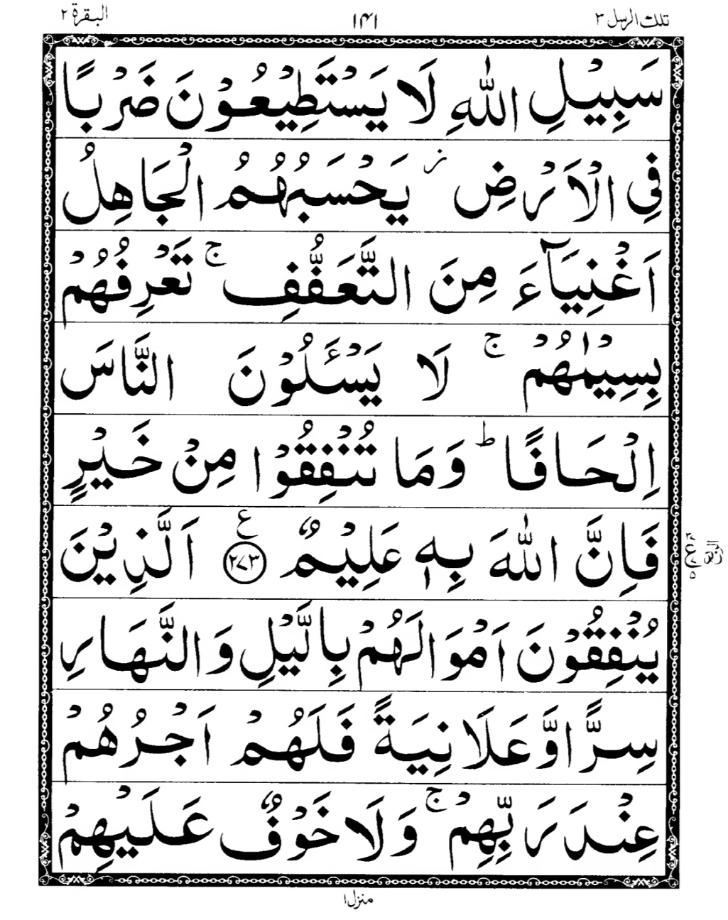 تلك الرسل ٣ ١٤١ البقرة ٢
سَبِيْلِ اللّٰهِ لَا يَسْتَطِيْعُوْنَ ضَرْبًا
فِى الْاَرْضِ ز يَحْسَبُهُمُ الْجَاهِلُ
اَغْنِيَآءَ مِنَ التَّعَفُّفِ ج تَعْرِفُهُمْ
بِسِيْمٰهُمْ ج لَا يَسْـَٔلُوْنَ النَّاسَ
اِلْحَافًا ط وَمَا تُنْفِقُوْا مِنْ خَيْرٍ
فَاِنَّ اللّٰهَ بِهٖ عَلِيْمٌ ع ٢٧٣ اَلَّذِيْنَ
يُنْفِقُوْنَ اَمْوَالَهُمْ بِالَّيْلِ وَالنَّهَارِ
سِرًّا وَّعَلَانِيَةً فَلَهُمْ اَجْرُهُمْ
عِنْدَ رَبِّهِمْ ج وَلَا خَوْفٌ عَلَيْهِمْ
منزل ١